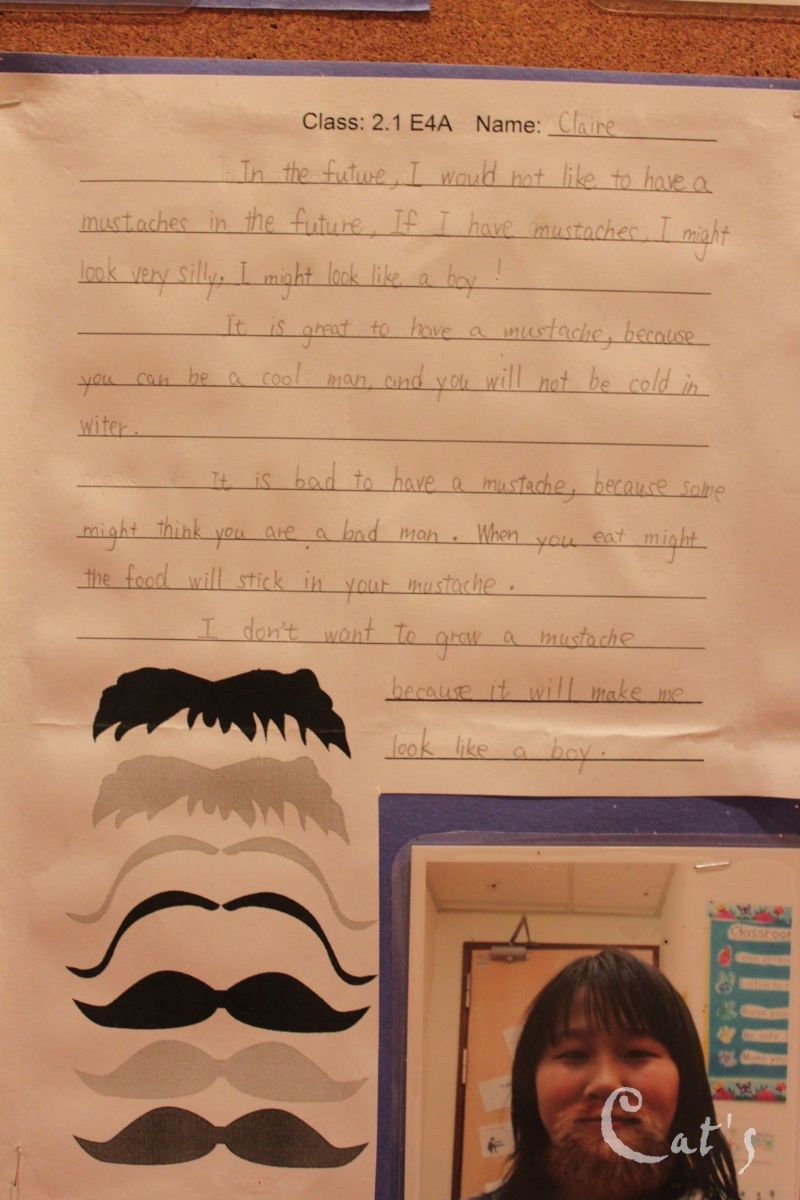 Class: 2.1 E4A Name: Claire
In the future, I would not like to have a
mustaches in the future, If I have mustaches, I might
look very silly, I might look like a boy !
It is great to have a mustache, because
you can be a cool man, and you will not be cold in
witer.
It is bad to have a mustache, because some
might think you are a bad man. When you eat might
the food will stick in your mustache.
I don't want to grow a mustache
because it will make me
look like a boy.
Classroom
Cat's